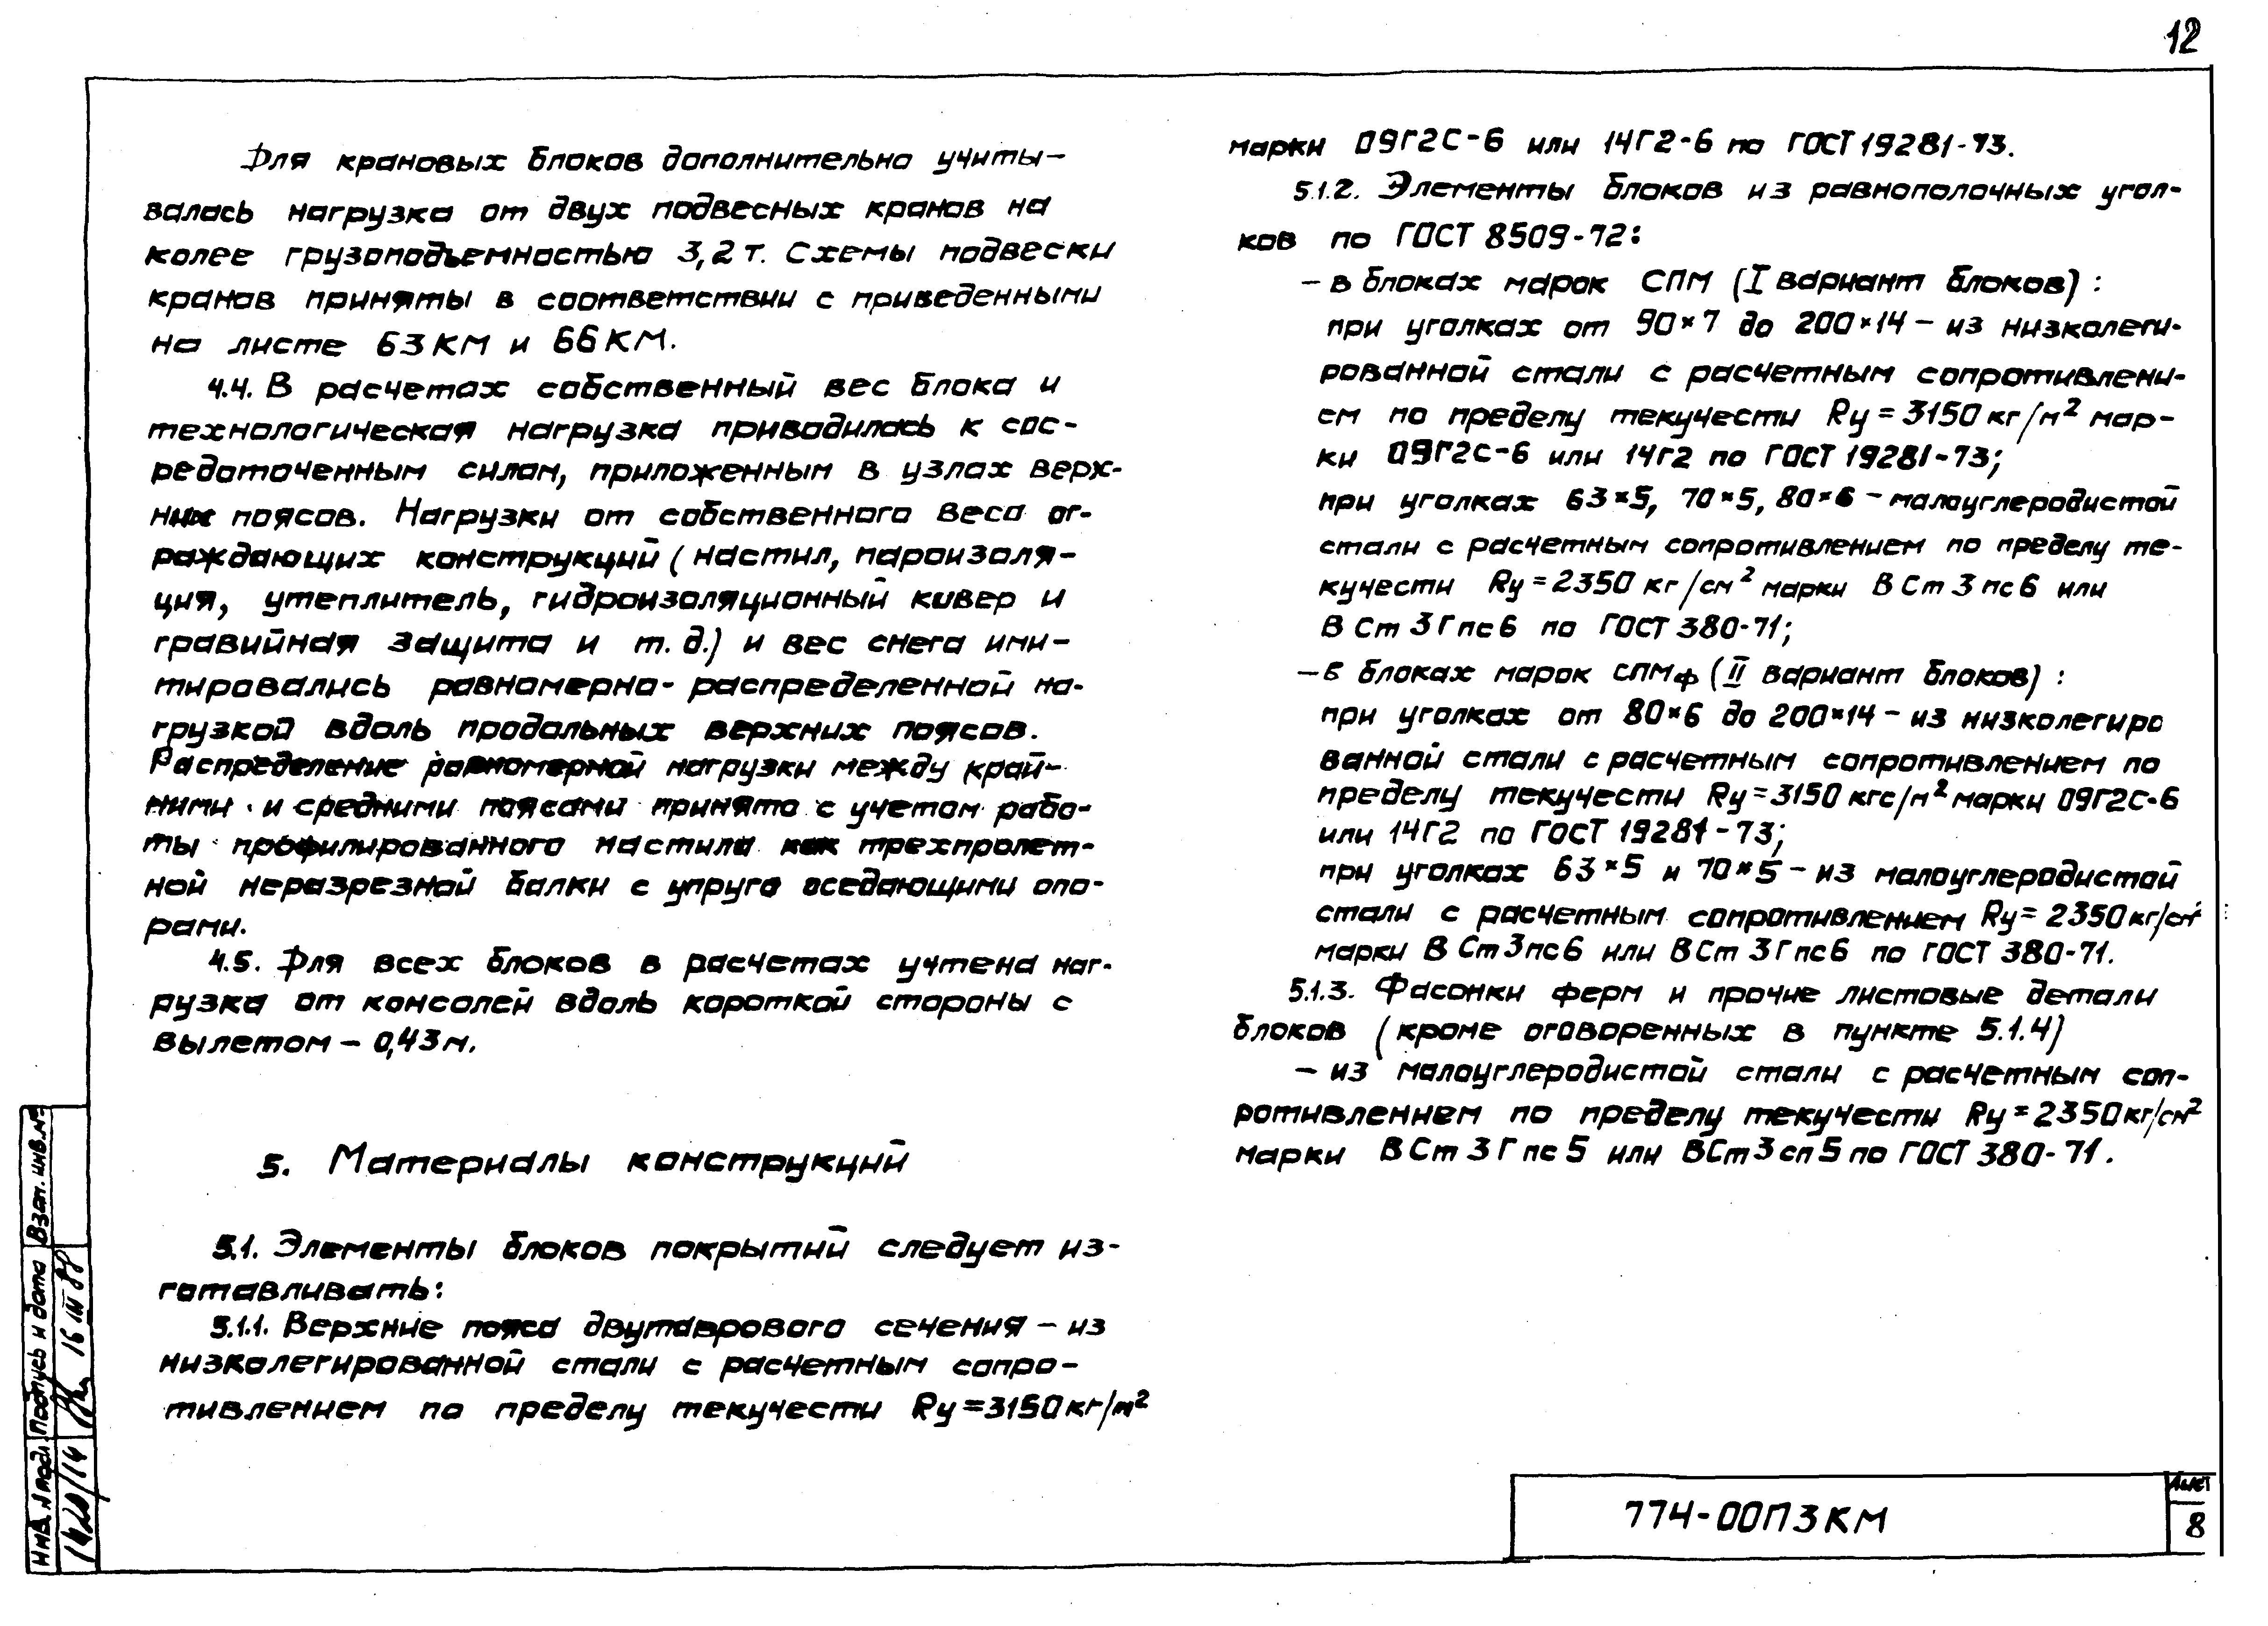 12
Для крановых блоков дополнительно учиты-
валась нагрузка от двух подвесных кранов на
колее грузоподъемностью 3,2 т. Схемы подвески
кранов приняты в соответствии с приведенными
на листе 63КМ и 66КМ.
4.4. В расчетах собственный вес блока и
технологическая нагрузка приводилась к сос-
редоточенным силам, приложенным в узлах верх-
них поясов. Нагрузки от собственного веса ог-
раждающих конструкций (настил, пароизоля-
ция, утеплитель, гидроизоляционный ковер и
гравийная защита и т.д.) и вес снега ими-
тировались равномерно-распределенной на-
грузкой вдоль продольных верхних поясов.
Распределение равномерной нагрузки между край-
ними и средними поясами принято с учетом рабо-
ты профилированного настила как трехпролет-
ной неразрезной балки с упруго оседающими опо-
рами.
4.5. Для всех блоков в расчетах учтена наг-
рузка от консолей вдоль короткой стороны с
вылетом - 0,43м.
5. Материалы конструкций
5.1. Элементы блоков покрытий следует из-
готавливать:
5.1.1. Верхние пояса двутаврового сечения - из
низколегированной стали с расчетным сопро-
тивлением по пределу текучести Ry=3150кг/м²
марки 09Г2С-6 или 14Г2-6 по ГОСТ 19281-73.
5.1.2. Элементы блоков из равнополочных угол-
ков по ГОСТ 8509-72:
- в блоках марок СПМ (I вариант блоков):
при уголках от 90×7 до 200×14 - из низколеги-
рованной стали с расчетным сопротивлени-
ем по пределу текучести Ry=3150кг/м² мар-
ки 09Г2С-6 или 14Г2 по ГОСТ 19281-73;
при уголках 63×5, 70×5, 80×6 - малоуглеродистой
стали с расчетным сопротивлением по пределу те-
кучести Ry=2350 кг/см² марки ВСт3пс6 или
ВСт3Гпс6 по ГОСТ 380-71;
- в блоках марок СПМф (II вариант блоков):
при уголках от 80×6 до 200×14 - из низколегиро
ванной стали с расчетным сопротивлением по
пределу текучести Ry=3150 кгс/м² марки 09Г2С-6
или 14Г2 по ГОСТ 19281-73;
при уголках 63×5 и 70×5 - из малоуглеродистой
стали с расчетным сопротивлением Ry=2350кг/см²
марки ВСт3пс6 или ВСт3Гпс6 по ГОСТ 380-71.
5.1.3. Фасонки ферм и прочие листовые детали
блоков (кроме оговоренных в пункте 5.1.4)
- из малоуглеродистой стали с расчетным соп-
ротивлением по пределу текучести Ry=2350кг/см²
марки ВСт3Гпс5 или ВСт3сп5 по ГОСТ 380-71.
Взап. инв.№
Подпись и дата
16 III 88
Инв.№подл.
1420/14
774-00ПЗКМ
Лист
8